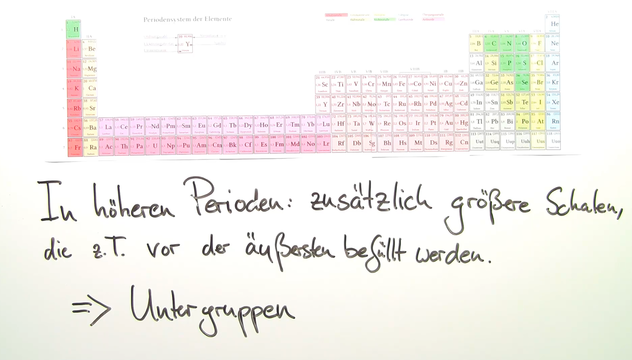 Periodensystem der Elemente
H He
Li Be B C N O F Ne
Na Mg Al Si P S Cl Ar
K Ca Sc Ti V Cr Mn Fe Co Ni Cu Zn Ga Ge As Se Br Kr
Rb Sr Y Zr Nb Mo Tc Ru Rh Pd Ag Cd In Sn Sb Te I Xe
Cs Ba La Ce Pr Nd Pm Sm Eu Gd Tb Dy Ho Er Tm Yb Lu Hf Ta W Re Os Ir Pt Au Hg Tl Pb Bi Po At Rn
Fr Ra Ac Th Pa U Np Pu Am Cm Bk Cf Es Fm Md No Lr Rf Db Sg Bh Hs Mt Ds Rg Cn
In höheren Perioden: zusätzlich größere Schalen,
die z.T. vor der äußersten befüllt werden.
=> Untergruppen